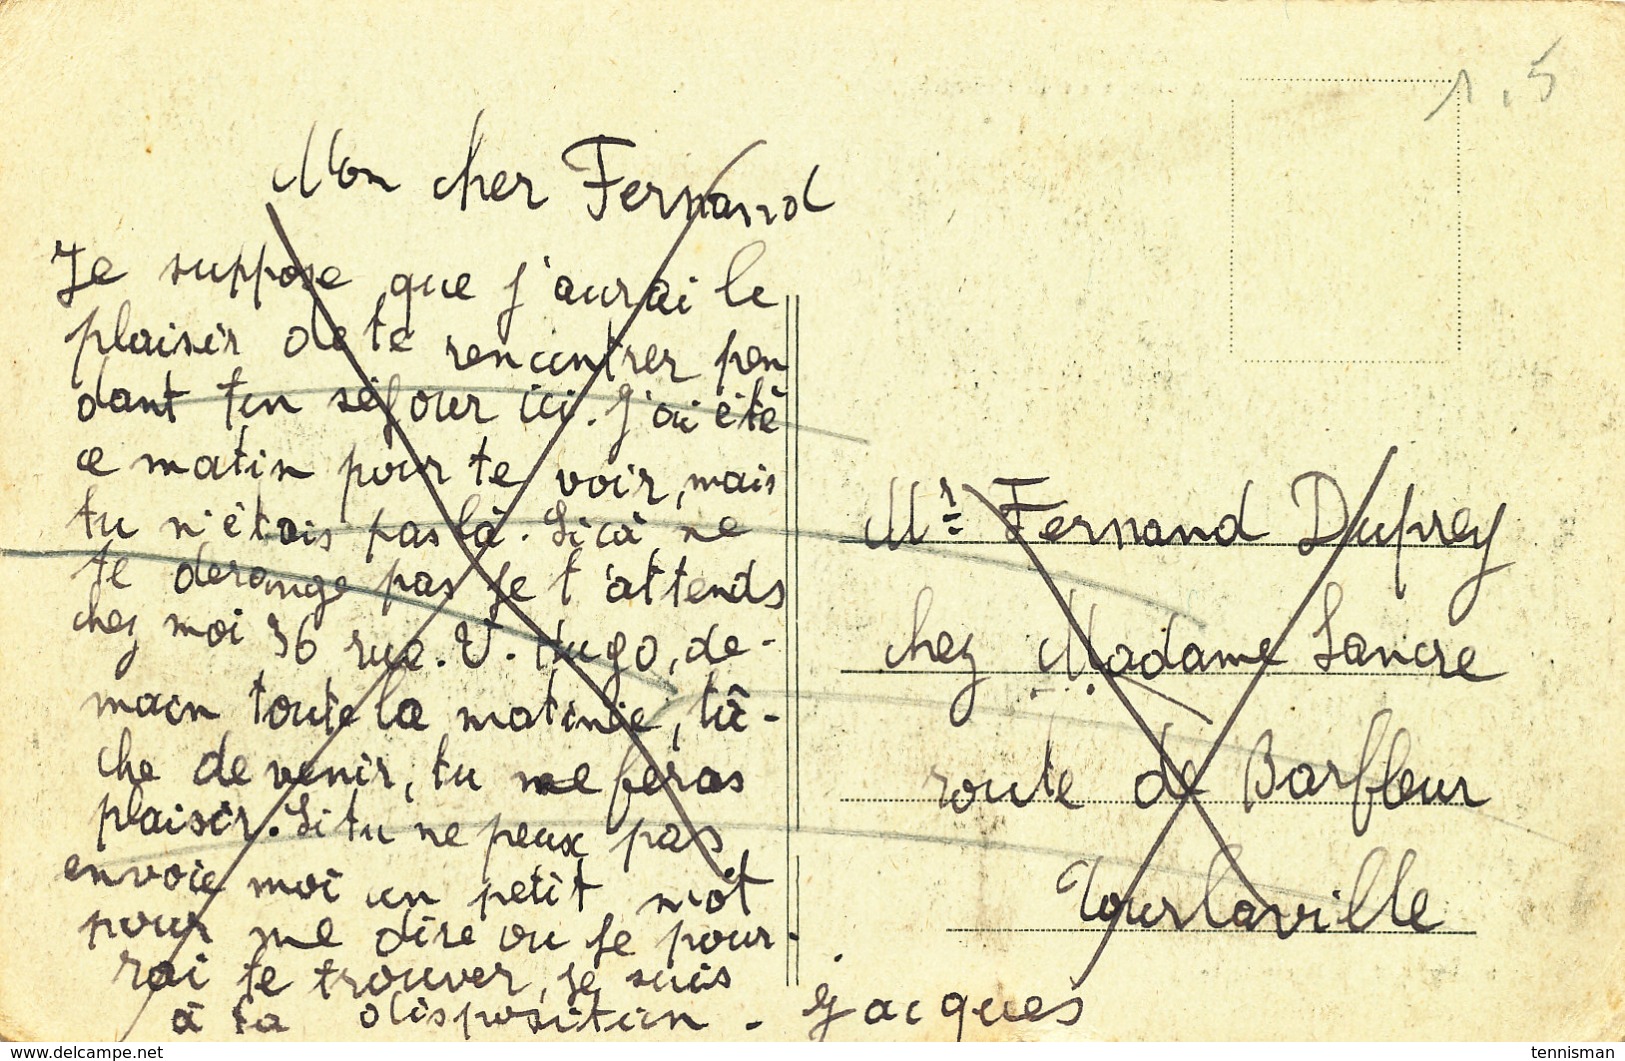 1,5
Mon cher Fernand
Je suppose que j'aurai le
plaisir de te rencontrer pen
dant ton séjour ici. J'ai été
ce matin pour te voir, mais
tu n'étais pas là. Si cà ne
te derange pas je t'attends
chez moi 36 rue. V. Hugo, de-
main toute la matinée, tâ-
che de venir, tu me feras
plaisir. Si tu ne peux pas
envoie moi un petit mot
pour me dire ou je pour-
rai te trouver, je suis
à ta disposition. Jacques
Mr Fernand Duprey
chez Madame Lancre
route de Barfleur
Tourlaville
https://www.delcampe.net
tennisman